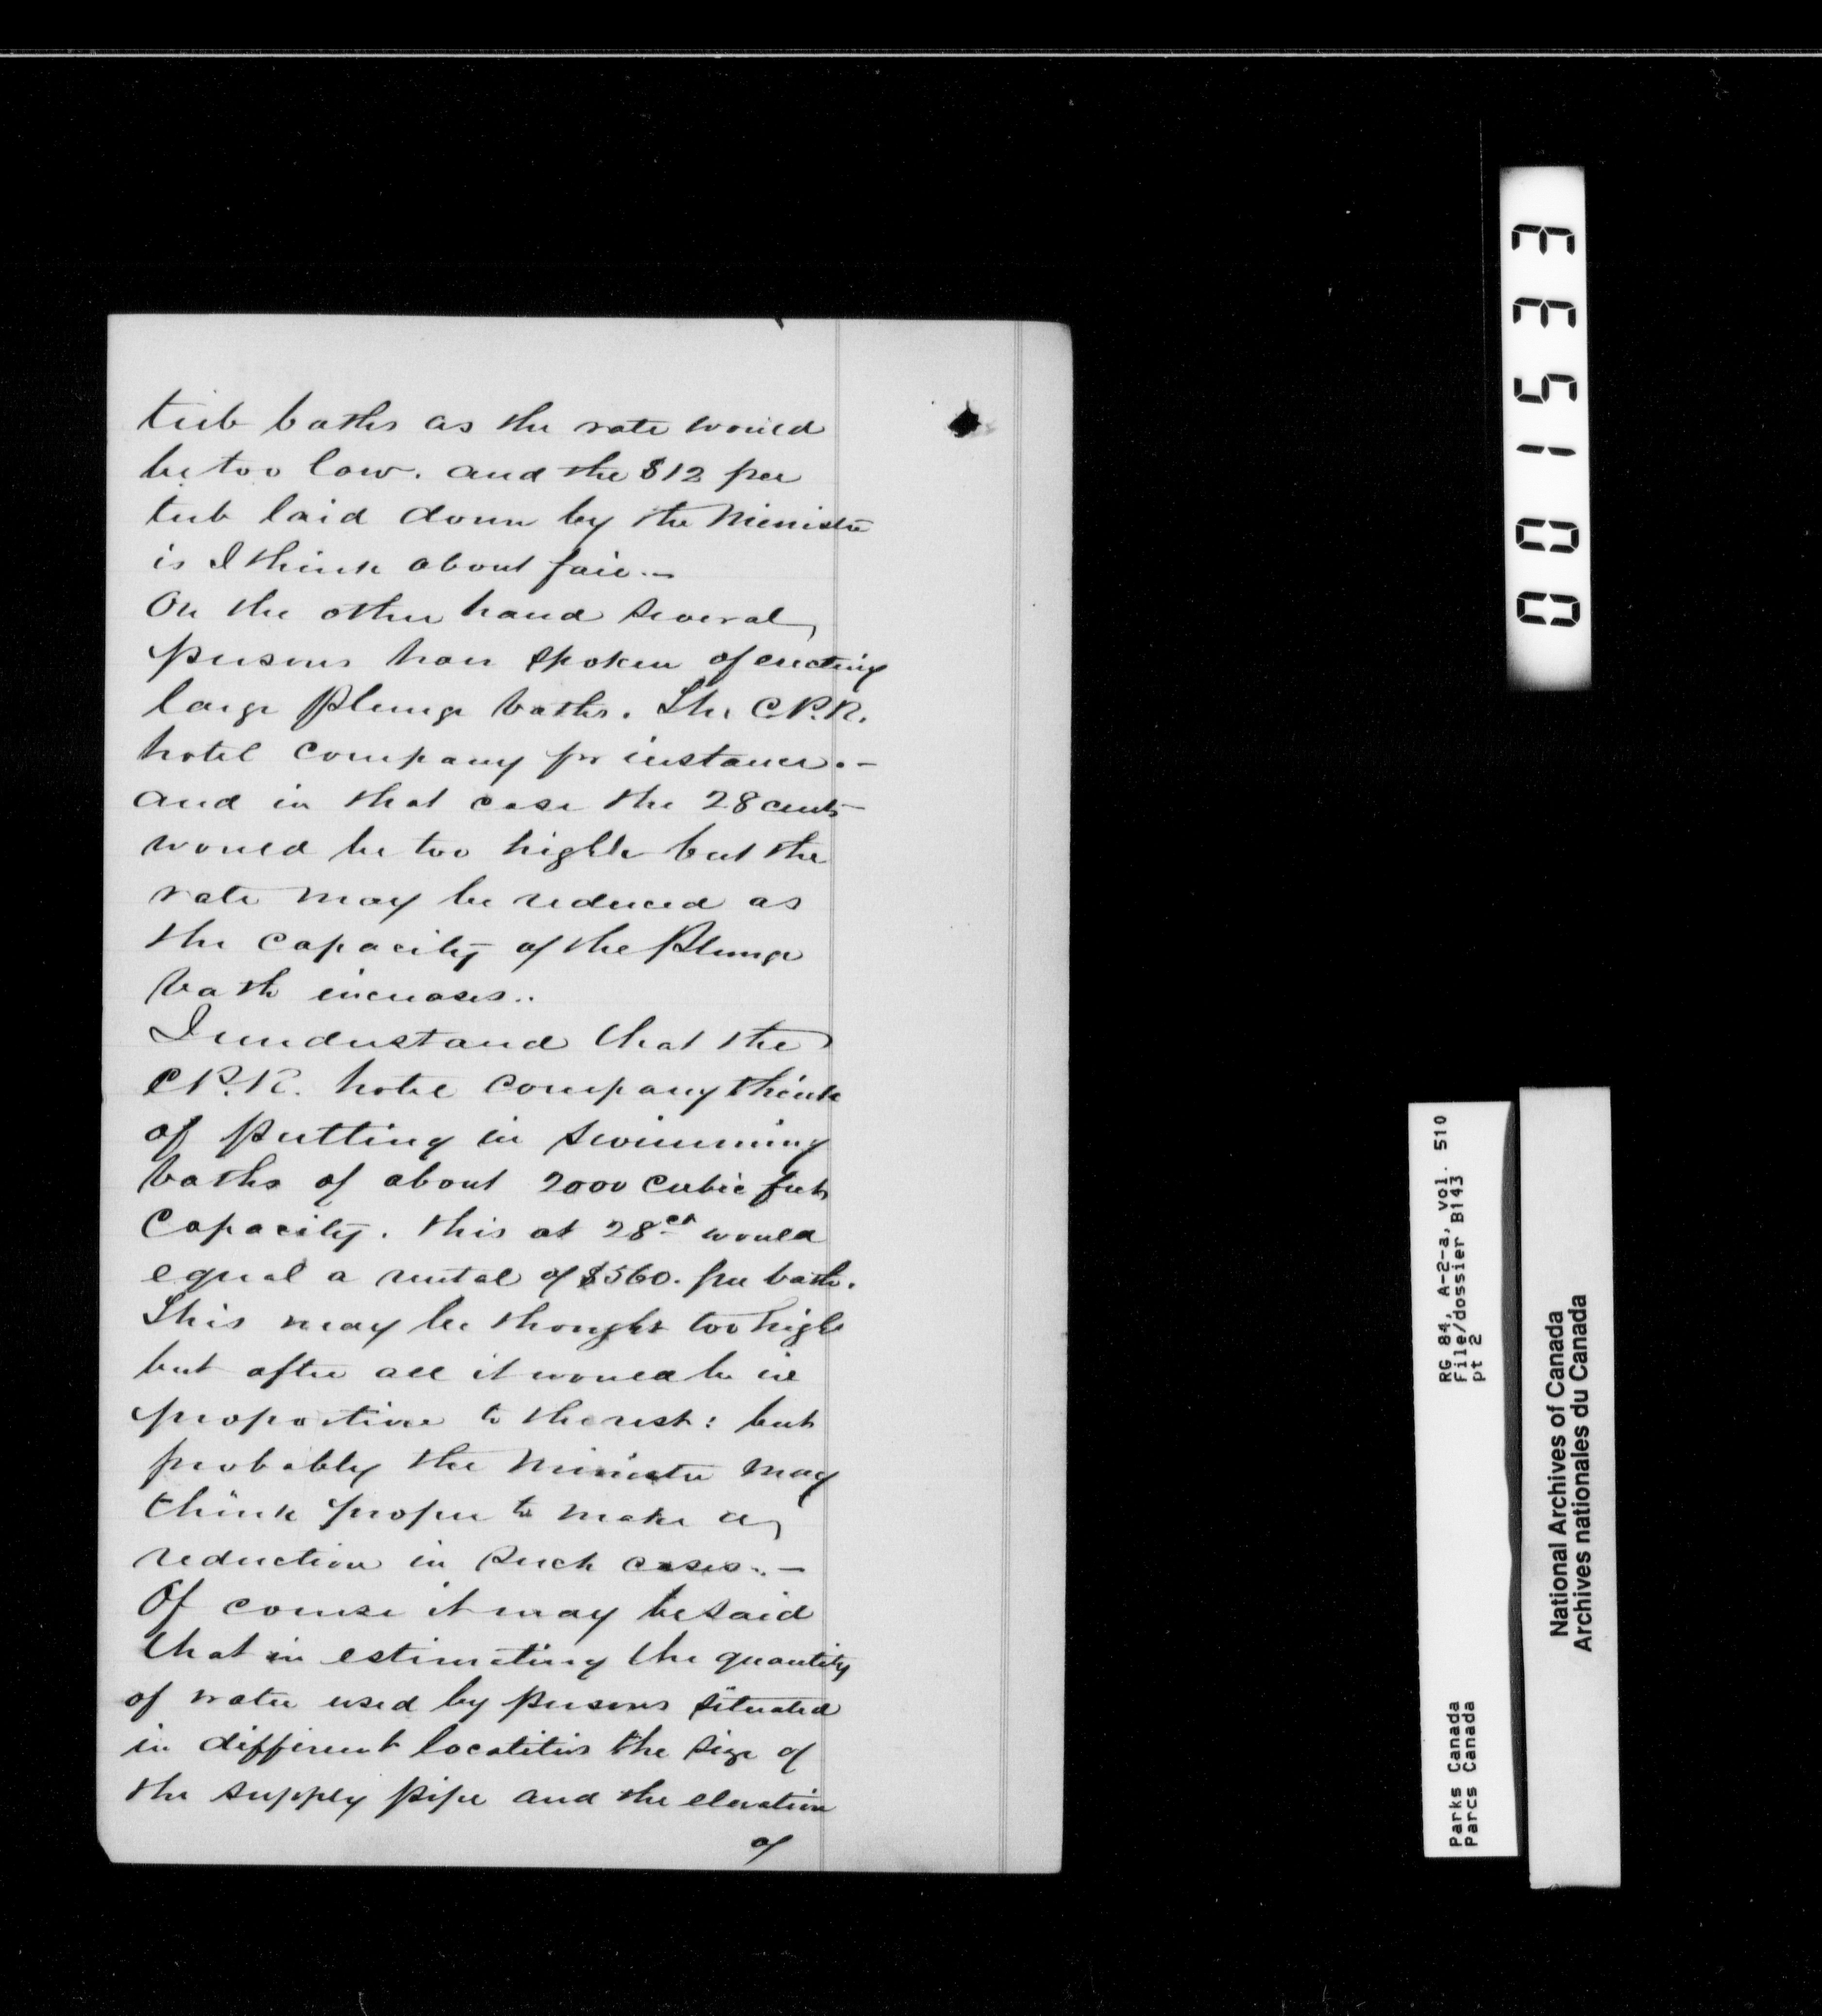 tub baths as the rate would
be too low. and the $12 per
tub laid down by the Minister
is I think about fair.—
On the other hand several
persons have spoken of erecting
large plunge baths. The C.P.R.
hotel company for instance.—
and in that case the 28 cents
would be too high but the
rate may be reduced as
the capacity of the Plunge
bath increases..
I understand that the
C.P.R. hotel company think
of putting in swimming
baths of about 2000 cubic feet
capacity. this at 28 cts would
equal a rental of $560. per bath.
This may be thought too high
but after all it would be in
proportion to the rest: but
probably the Minister may
think proper to make a
reduction in such cases..—
Of course it may be said
that in estimating the quantity
of water used by persons situated
in different localities the size of
the supply pipe and the elevation
of
001533
RG 84, A-2-a, vol. 510
File/dossier B143
pt 2
Parks Canada
Parcs Canada
National Archives of Canada
Archives nationales du Canada